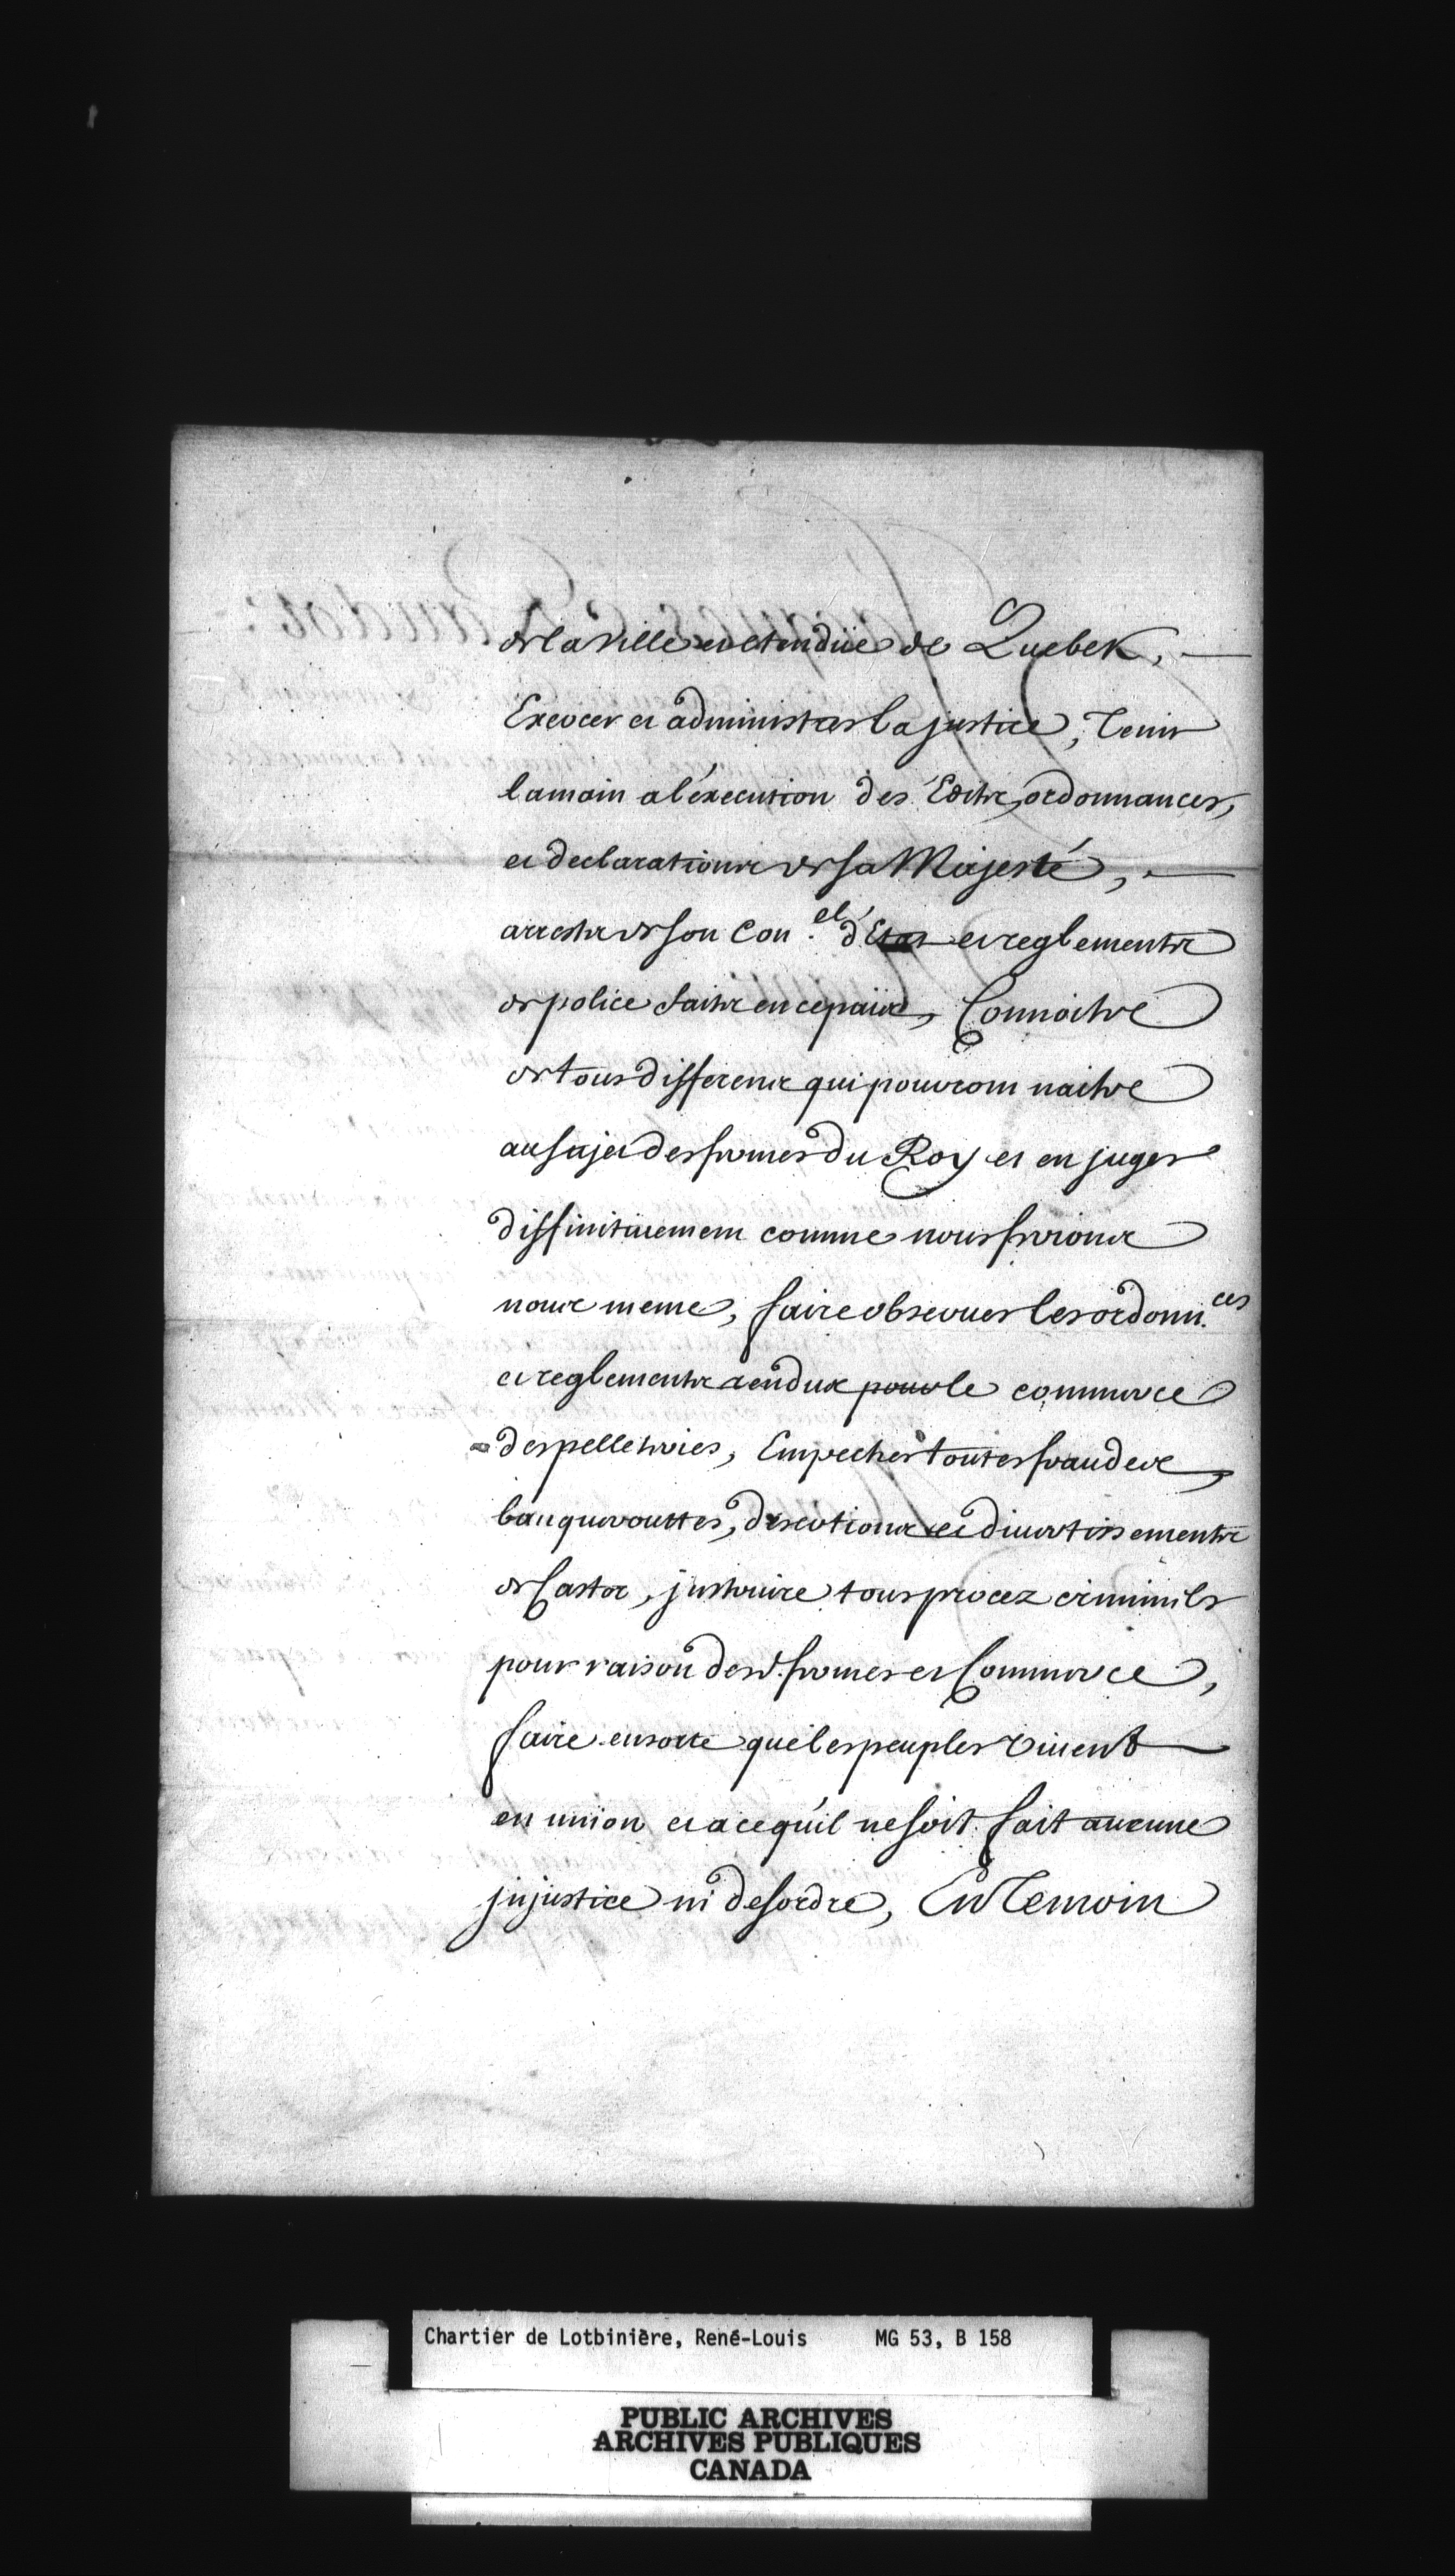 de la ville et etendüe de Quebek,
Exercer et administrer la justice, Tenir
la main a l'éxecution des Édits, ordonnances,
et declarations de sa Majesté,
arrests de son Con.el d'Etat et reglements
de police faits en ce païis, Connoitre
de tous differens qui pouront naitre
au sujet des fermes du Roy et en juger
diffinitivement comme nous ferions
nous meme, faire observer les ordonn.ces
et reglements rendus pour le commerce
des pelleteries, Empecher toutes fraudes,
banquerouttes, desertions et divertissements
de Castor, justruire tous procez criminels
pour raison desd. fermes et Commerce,
faire ensorte que les peuples vivent
en union et a ce qu'il ne soit fait aucune
jnjustice ni desordre, En Temoin
Chartier de Lotbinière, René-Louis MG 53, B 158
PUBLIC ARCHIVES
ARCHIVES PUBLIQUES
CANADA